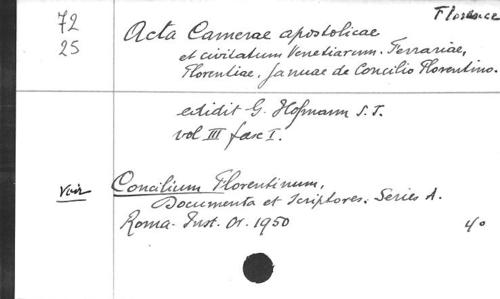 Florence
72
25
Acta Camerae apostolicae
et civitatum Venetiarum. Ferrariae,
Florentiae. Januae de Concilio Florentino.
edidit G. Hofmann S.J.
vol III fasc I.
voir Concilium Florentinum,
Documenta et Scriptores. Series A.
Roma. Inst. Or. 1950 4°